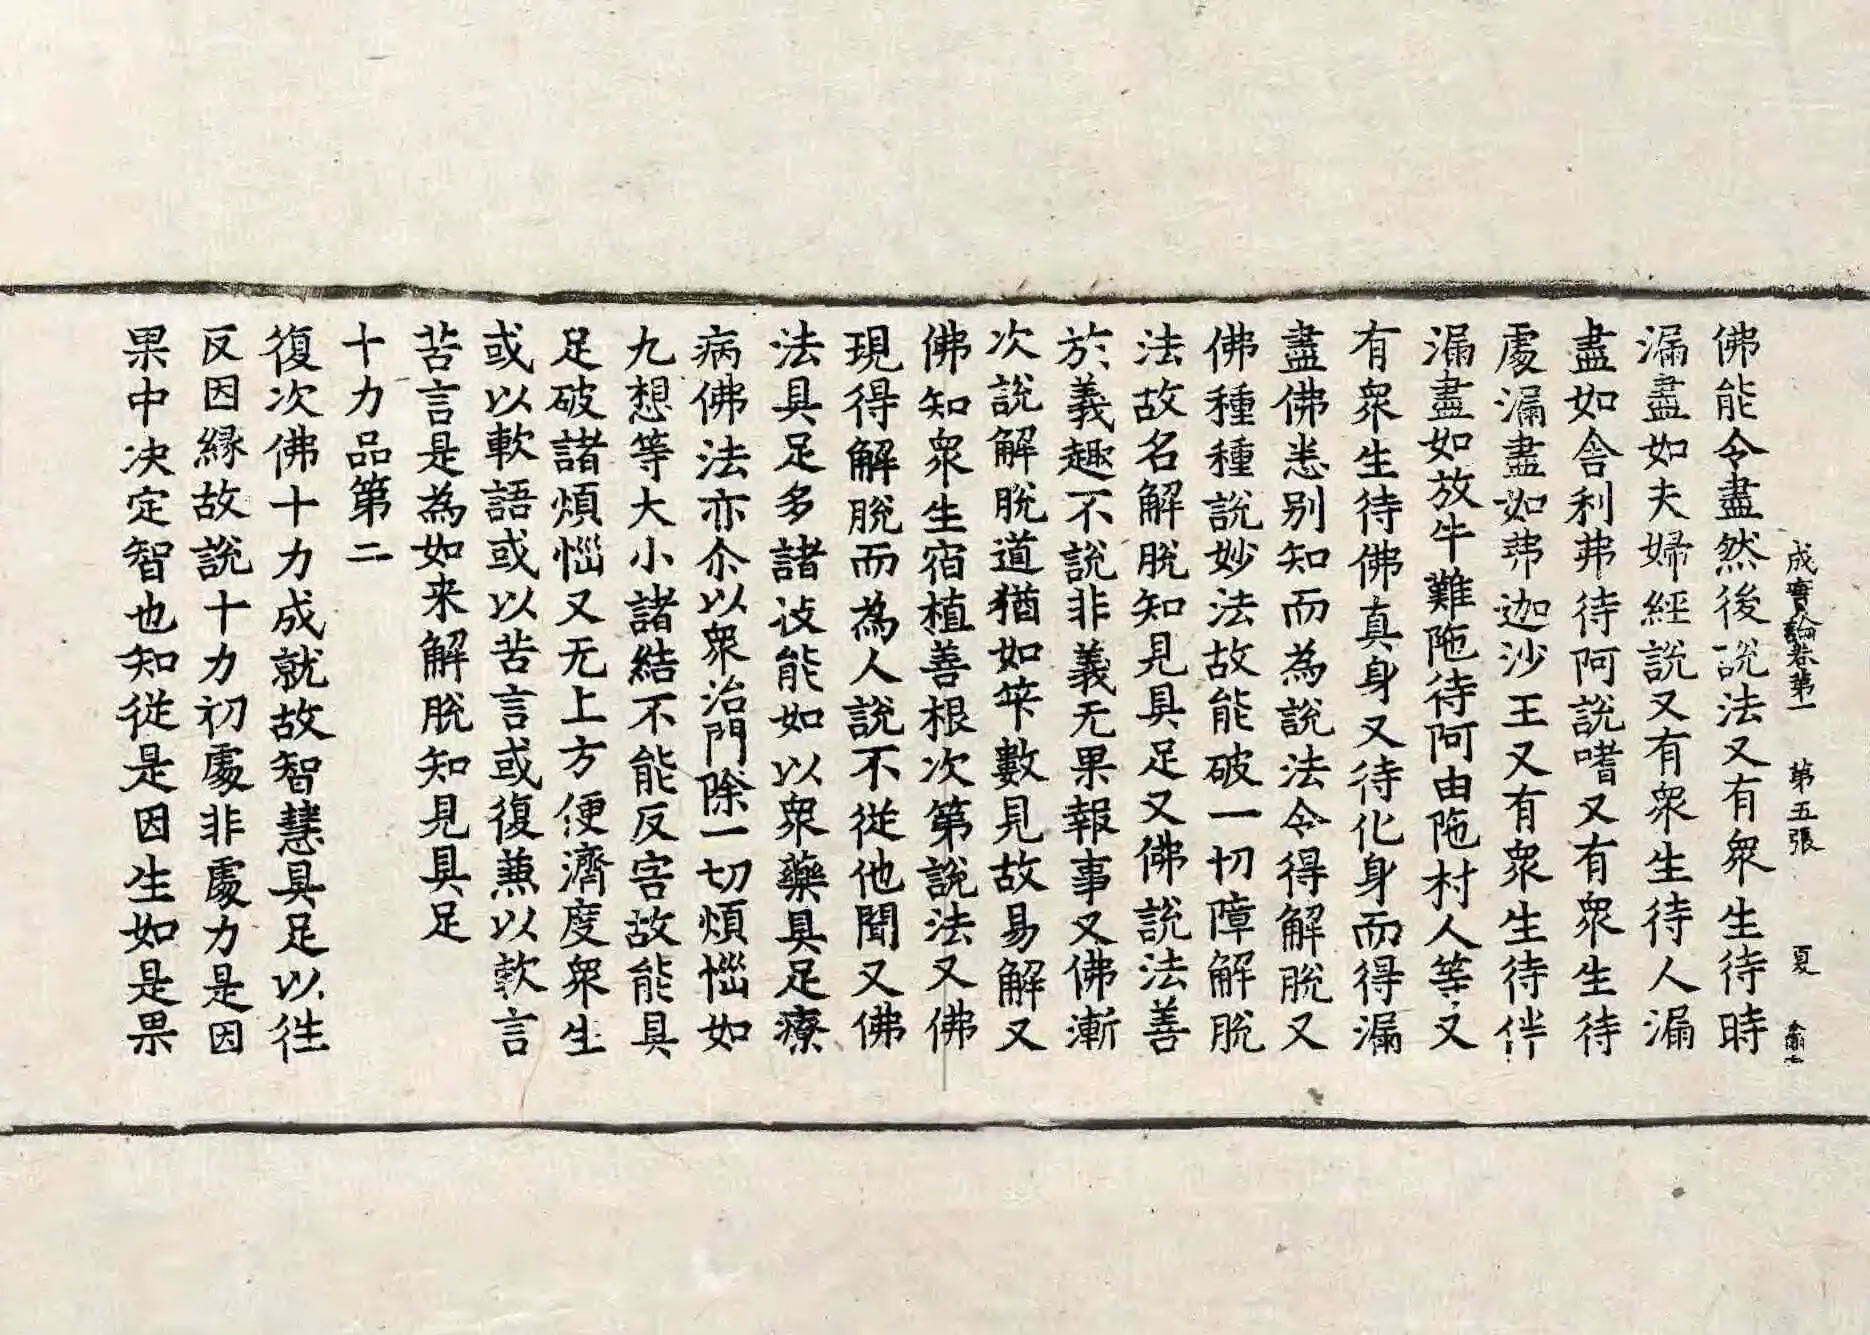 成實論卷第一　第五張　夏
佛能令盡然後說法又有衆生待時
漏盡如夫婦經說又有衆生待人漏
盡如舎利弗待阿說嗜又有衆生待
處漏盡如弗迦沙王又有衆生待伴
漏盡如放牛難陁待阿由陁村人等又
有衆生待佛真身又待化身而得漏
盡佛悉别知而為說法令得解脫又
佛種種說妙法故能破一切障解脫
法故名解脫知見具足又佛說法善
於義趣不說非義无果報事又佛漸
次說解脫道猶如笇數見故易解又
佛知衆生宿植善根次第說法又佛
現得解脫而為人說不從他聞又佛
法具足多諸㳠能如以衆藥具足療
病佛法亦尒以衆治門除一切煩惱如
九想等大小諸結不能反害故能具
足破諸煩惱又无上方便濟度衆生
或以軟語或以苦言或復兼以軟言
苦言是為如来解脫知見具足
十力品第二
復次佛十力成就故智慧具足以往
反因緣故說十力初處非處力是因
果中决定智也知從是因生如是果